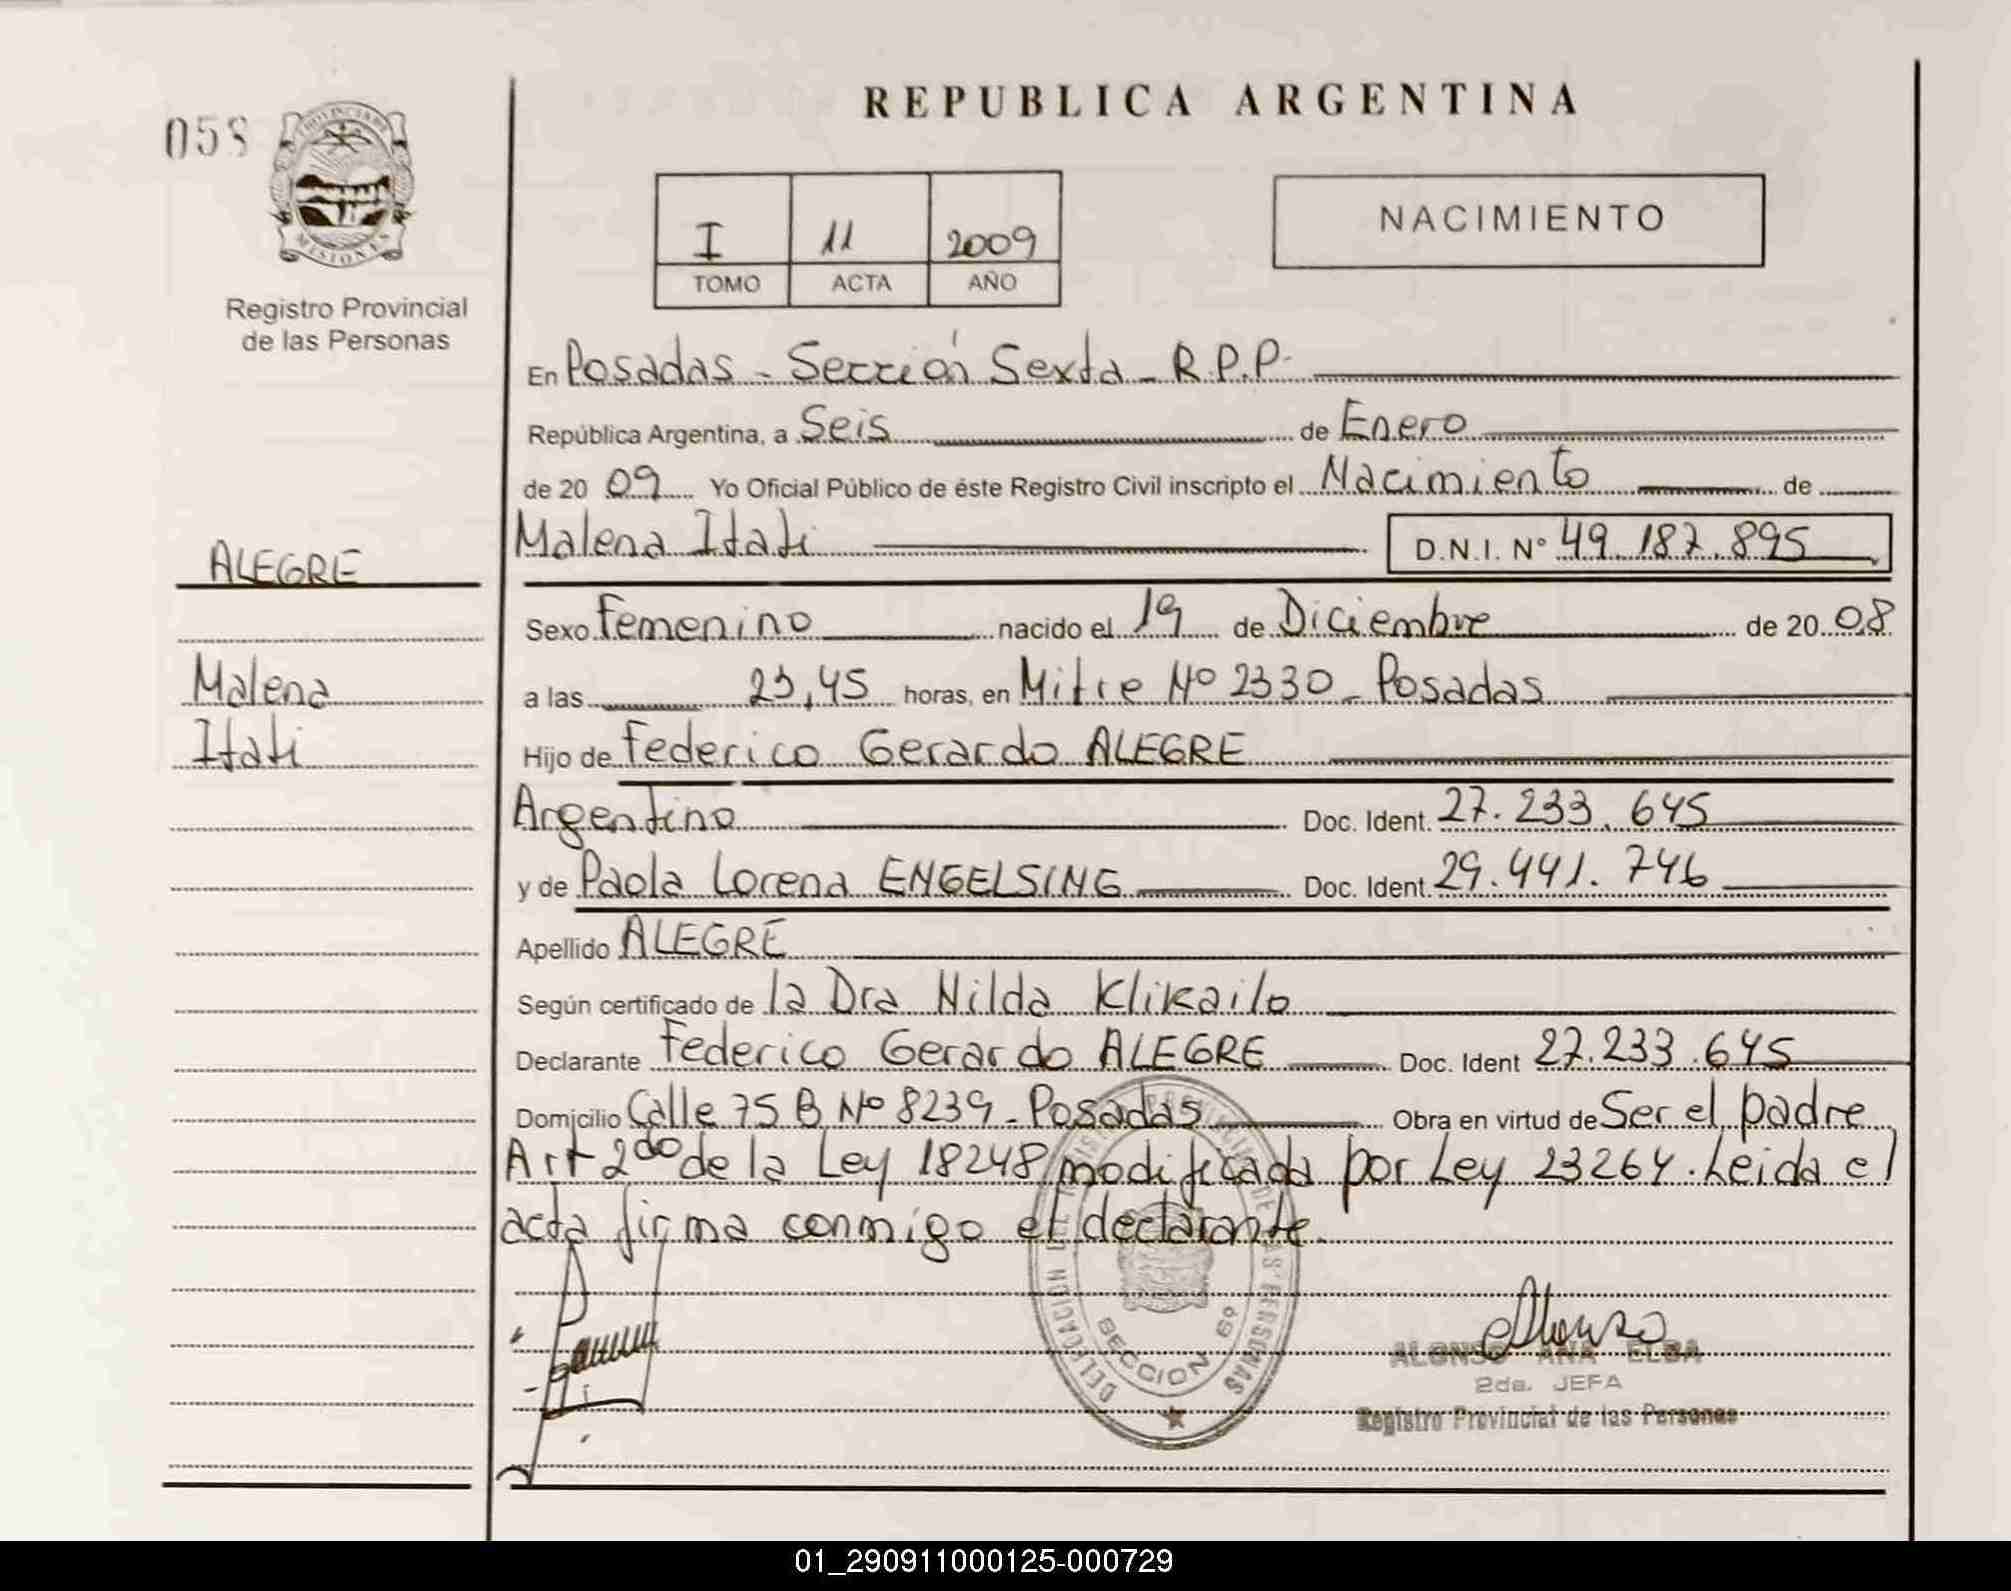 REPUBLICA ARGENTINA
058
PROVINCIA DE
MISIONES
Registro Provincial
de las Personas
I 11 2009
TOMO ACTA AÑO
NACIMIENTO
En Posadas - Sección Sexta - R.P.P.
República Argentina, a Seis de Enero
de 20 09 Yo Oficial Público de éste Registro Civil inscripto el Nacimiento de
Malena Itati D.N.I. Nº 49.187.895
ALEGRE
Sexo Femenino nacido el 19 de Diciembre de 20 08
Malena
a las 23,45 horas, en Mitre Nº 2330 - Posadas
Itati
Hijo de Federico Gerardo ALEGRE
Argentino Doc. Ident. 27.233.645
y de Paola Lorena ENGELSING Doc. Ident. 29.441.746
Apellido ALEGRE
Según certificado de la Dra Nilda Klikailo
Declarante Federico Gerardo ALEGRE Doc. Ident 27.233.645
Domicilio Calle 75 B Nº 8239 - Posadas Obra en virtud de Ser el padre
Art 2do de la Ley 18248 modificada por Ley 23264. Leida el
acta firma conmigo el declarante.
DELEGACION DEL REGISTRO PROVINCIAL DE LAS PERSONAS
SECCION 6º
Alonso
ALONSO ANA ELBA
2da. JEFA
Registro Provincial de las Personas
01_290911000125-000729